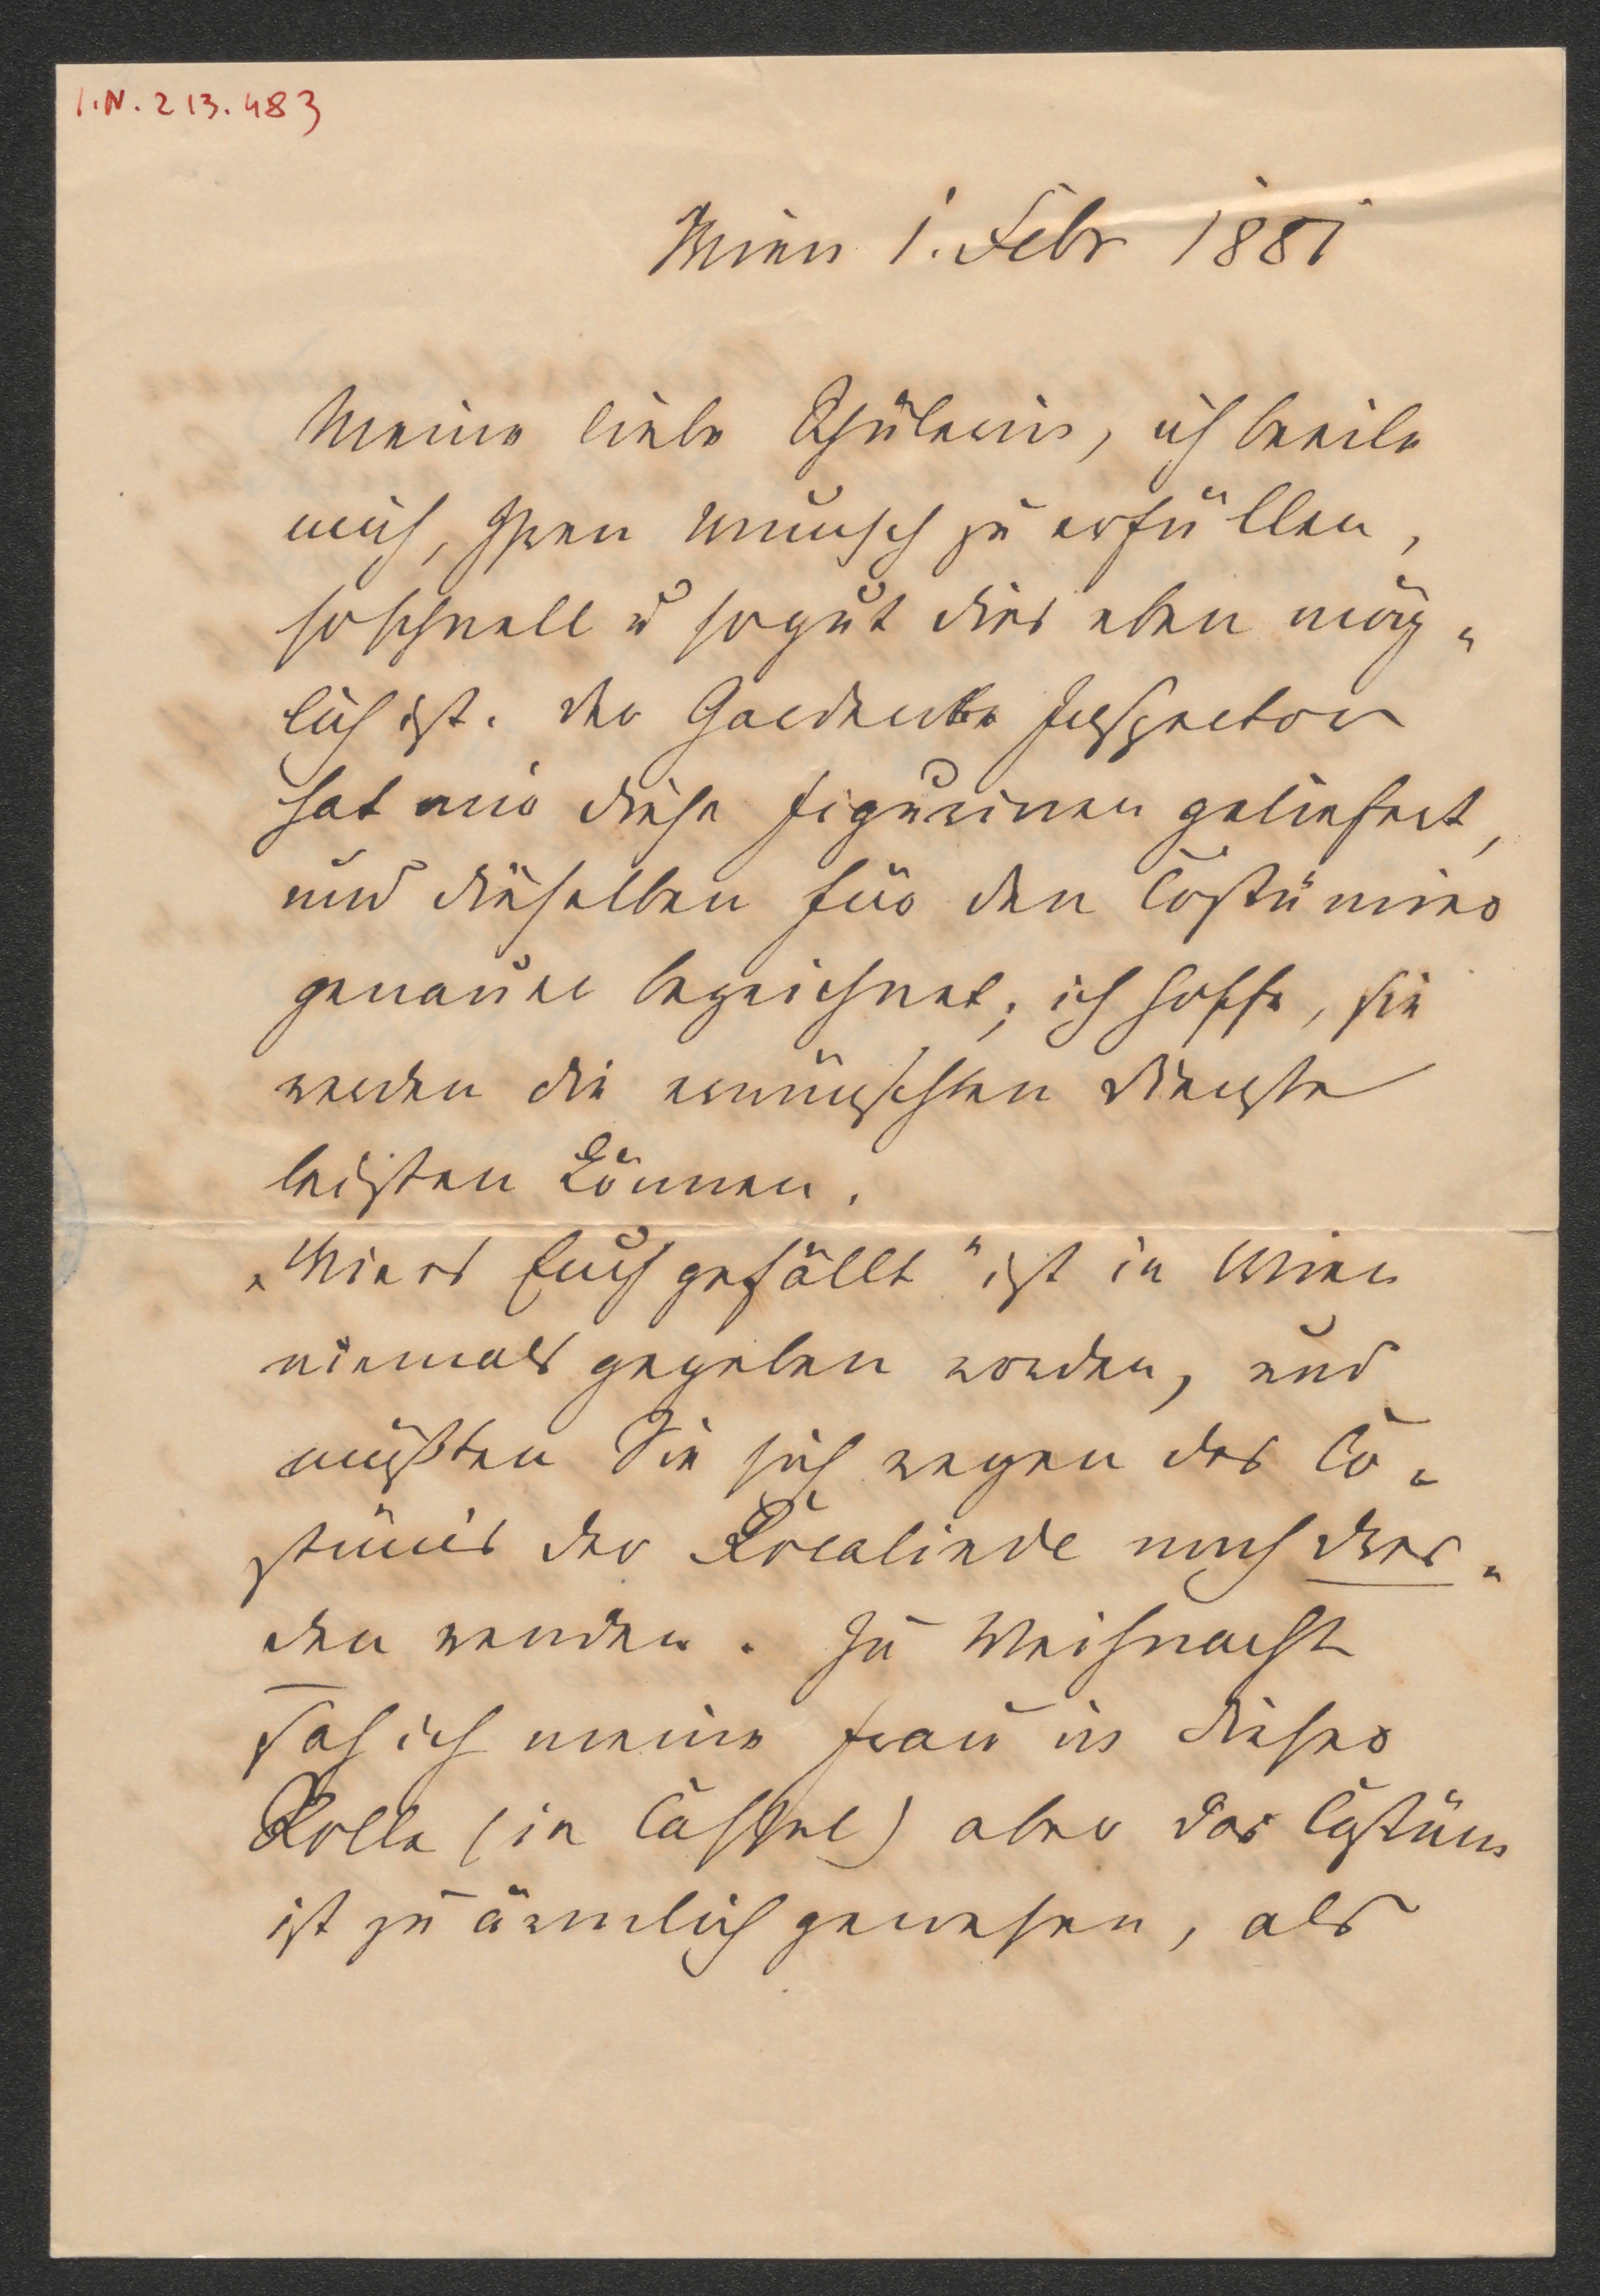 I.N. 213.483
Wien 1. Febr 1881
Meine liebe Schülerin, ich beeile
mich, Ihren Wunsch zu erfüllen,
so schnell u so gut dies eben mög„
lich ist. Der Garderobe Inspector
hat mir diese Figurinen geliefert,
und dieselben für den Costümier
genauer bezeichnet; ich hoffe, sie
werden die erwünschten Dienste
leisten können.
„Wie es Euch gefällt" ist in Wien
niemals gegeben worden, und
müßten Sie sich wegen des Co„
stüms der Rosalinde nach Dres„
den wenden. Zu Weihnacht
sah ich meine Frau in dieser
Rolle (in Cassel) aber das Costüm
ist zu ärmlich gewesen, als